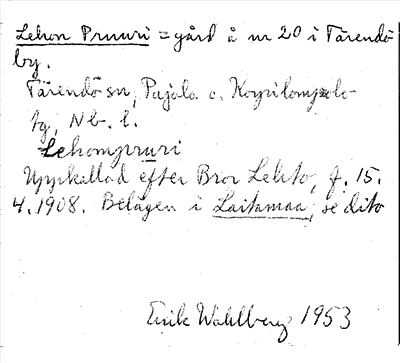 Lehon Pruuri = gård å nr 20 i Tärendö
by.
Tärendö sn, Pajala o. Korpilombolo
tg, Nb. l.
Lehompruuri
Uppkallad efter Bror Lehto, f. 15.
4.1908. Belägen i Laitamaa, se dito
Erik Wahlberg 1953